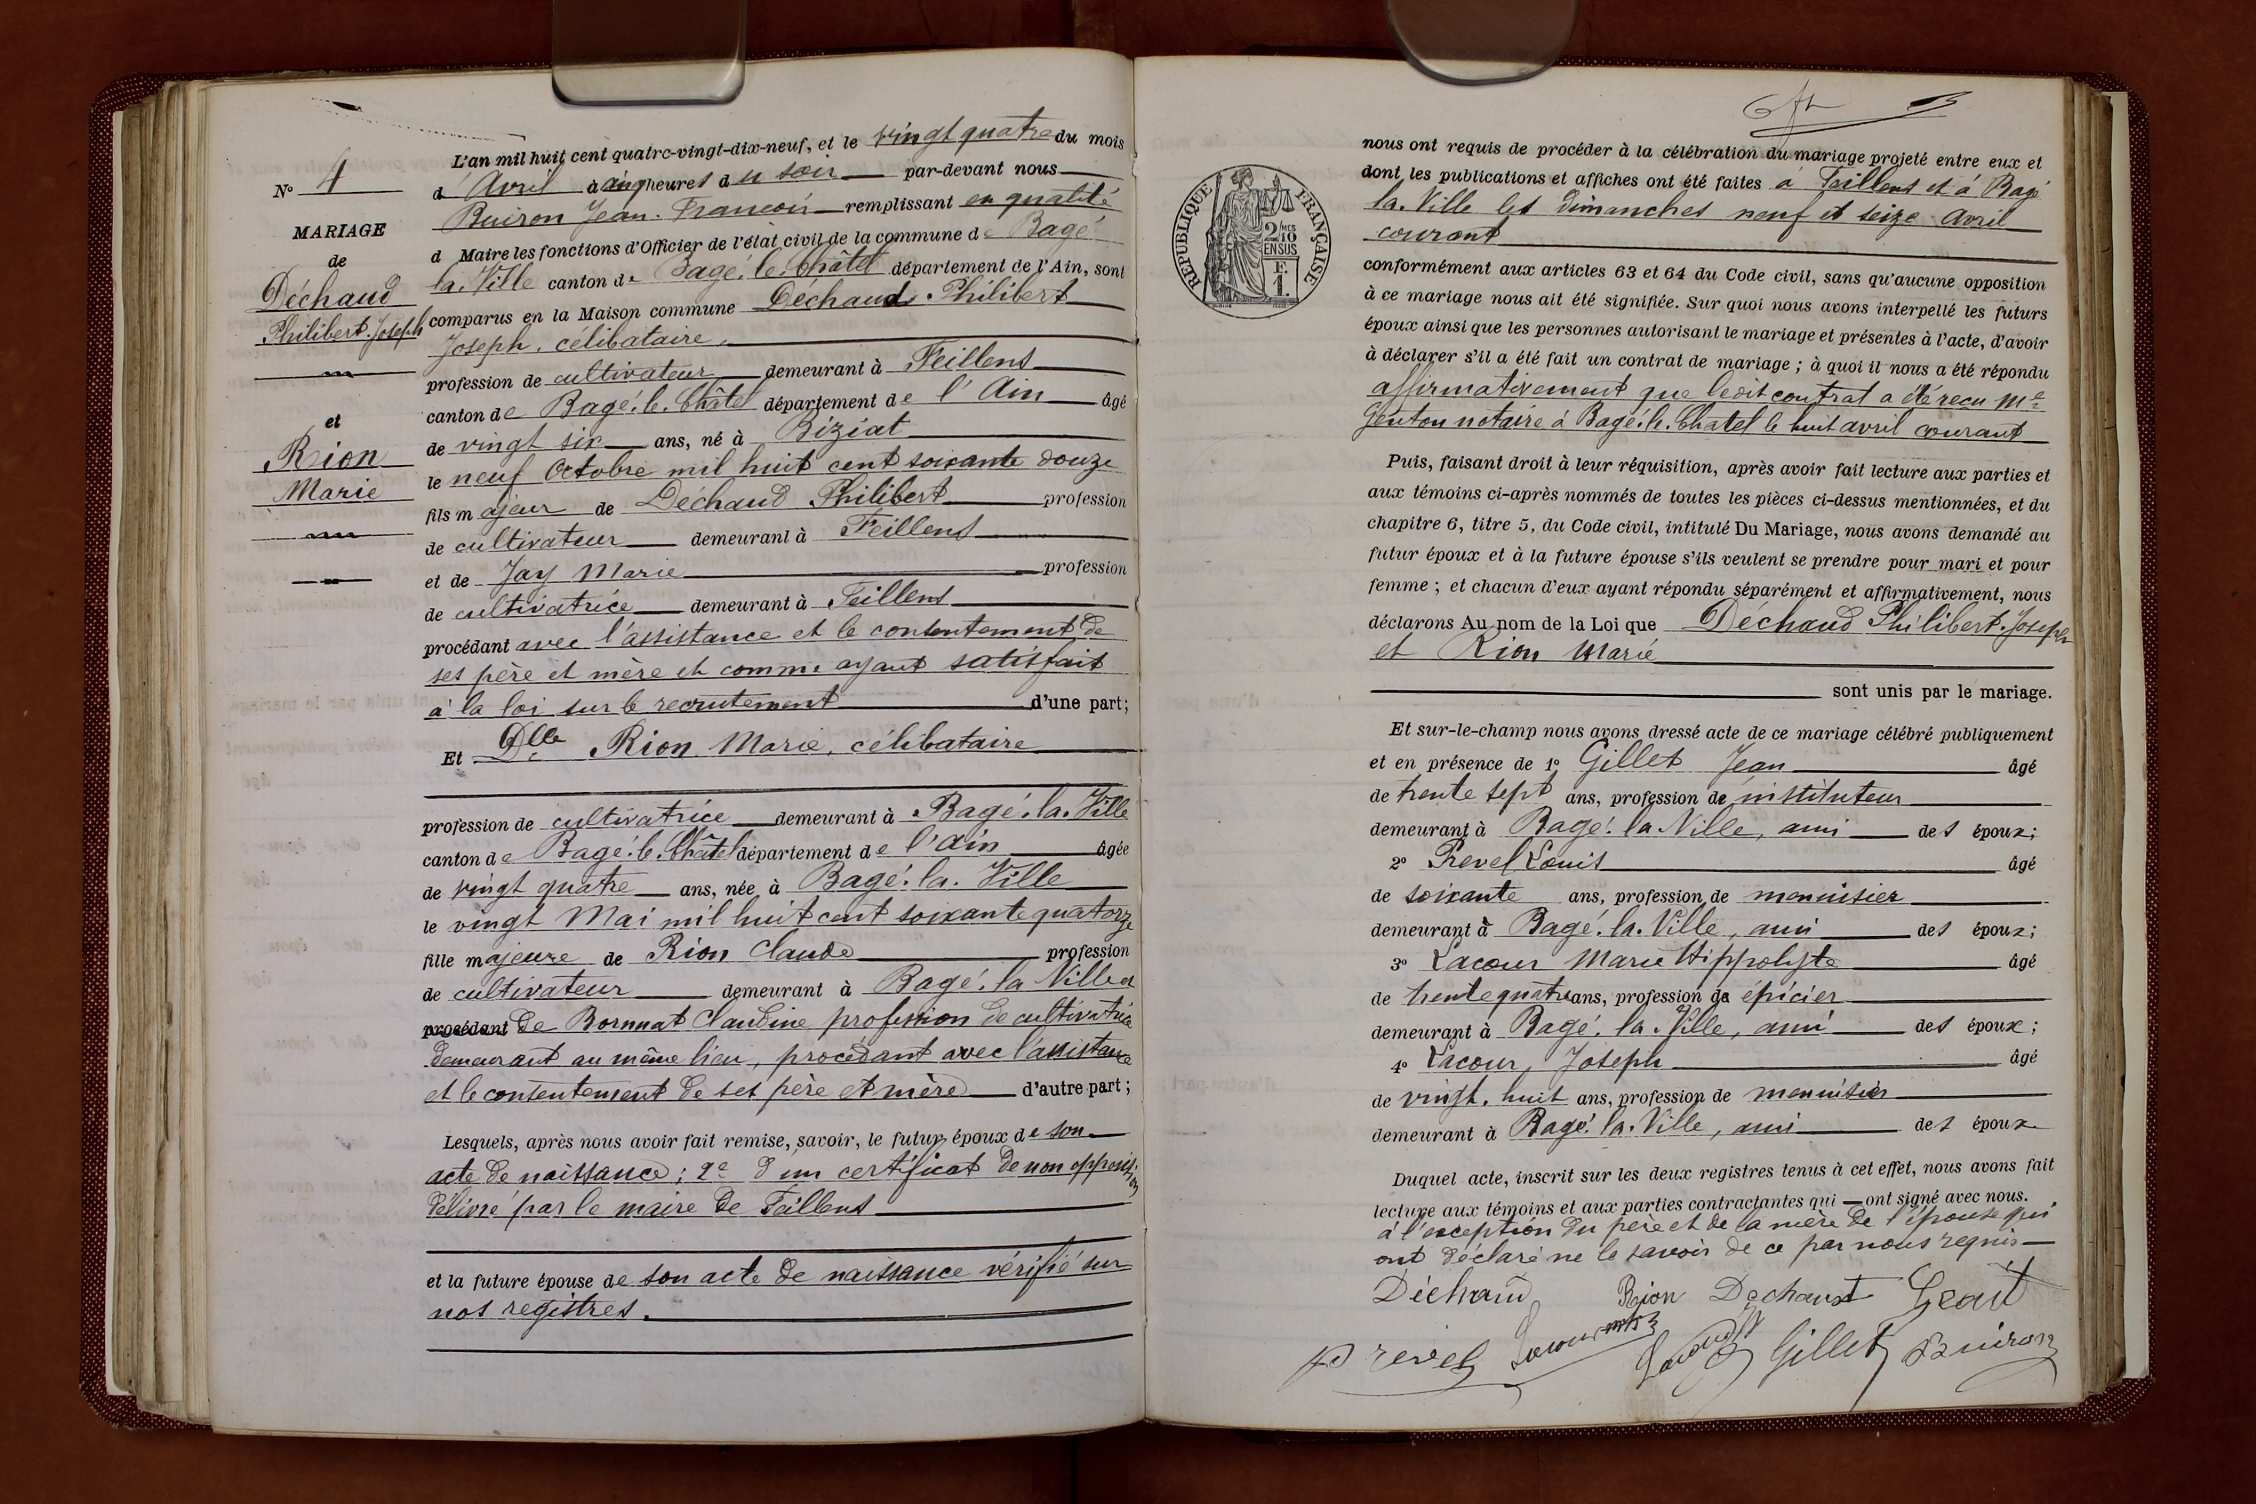 N° 4
MARIAGE
de
Déchaud
Philibert-Joseph
et
Rion
Marie
L'an mil huit cent quatre-vingt-dix-neuf, et le vingt quatre du mois
d'Avril à cinq heures du soir par-devant nous
Buiron Jean-François remplissant en qualité
d Maire les fonctions d'Officier de l'état civil de la commune de Bagé
la-Ville canton de Bagé-le-Châtel département de l'Ain, sont
comparus en la Maison commune Déchaud Philibert
Joseph, célibataire,
profession de cultivateur demeurant à Feillens
canton de Bagé-le-Châtel département de l'Ain âgé
de vingt six ans, né à Biziat
le neuf Octobre mil huit cent soixante douze
fils majeur de Déchaud Philibert profession
de cultivateur demeurant à Feillens
et de Jay Marie profession
de cultivatrice demeurant à Feillens
procédant avec l'assistance et le consentement de
ses père et mère et comme ayant satisfait
à la loi sur le recrutement d'une part;
Et Dlle Rion Marie, célibataire
profession de cultivatrice demeurant à Bagé-la-Ville
canton de Bagé-le-Châtel département de l'Ain âgée
de vingt quatre ans, née à Bagé-la-Ville
le vingt Mai mil huit cent soixante quatorze
fille majeure de Rion Claude profession
de cultivateur demeurant à Bagé-la-Ville et
procédant de Bornuat Claudine profession de cultivatrice
demeurant au même lieu, procédant avec l'assistance
et le consentement de ses père et mère d'autre part;
Lesquels, après nous avoir fait remise, savoir, le futur époux de son
acte de naissance; 2° d'un certificat de non opposition
délivré par le maire de Feillens
et la future épouse de son acte de naissance vérifié sur
nos registres.
RÉPUBLIQUE FRANÇAISE
2/10 EN SUS
F.
1.
nous ont requis de procéder à la célébration du mariage projeté entre eux et
dont les publications et affiches ont été faites à Feillens et à Bagé
la-Ville les dimanches neuf et seize Avril
courant
conformément aux articles 63 et 64 du Code civil, sans qu'aucune opposition
à ce mariage nous ait été signifiée. Sur quoi nous avons interpellé les futurs
époux ainsi que les personnes autorisant le mariage et présentes à l'acte, d'avoir
à déclarer s'il a été fait un contrat de mariage; à quoi il nous a été répondu
affirmativement que ledit contrat a été recu Me
Genton notaire à Bagé-le-Chatel le huit avril courant
Puis, faisant droit à leur réquisition, après avoir fait lecture aux parties et
aux témoins ci-après nommés de toutes les pièces ci-dessus mentionnées, et du
chapitre 6, titre 5, du Code civil, intitulé Du Mariage, nous avons demandé au
futur époux et à la future épouse s'ils veulent se prendre pour mari et pour
femme; et chacun d'eux ayant répondu séparément et affirmativement, nous
déclarons Au nom de la Loi que Déchaud Philibert-Joseph
et Rion Marie
sont unis par le mariage.
Et sur-le-champ nous avons dressé acte de ce mariage célébré publiquement
et en présence de 1° Gillet Jean âgé
de trente sept ans, profession de instituteur
demeurant à Bagé-la-Ville, ami des époux;
2° Prevel Louis âgé
de soixante ans, profession de menuisier
demeurant à Bagé-la-Ville, ami des époux;
3° Lacour Marie Hippolyte âgé
de trente quatre ans, profession de épicier
demeurant à Bagé-la-Ville, ami des époux;
4° Lacour Joseph âgé
de vingt-huit ans, profession de menuisier
demeurant à Bagé-la-Ville, ami des époux
Duquel acte, inscrit sur les deux registres tenus à cet effet, nous avons fait
lecture aux témoins et aux parties contractantes qui ont signé avec nous.
à l'exception du père et de la mère de l'épouse qui
ont déclaré ne le savoir de ce par nous requis
Déchaud Rion Dechaud
Prevel Lacour Gillet Buiron